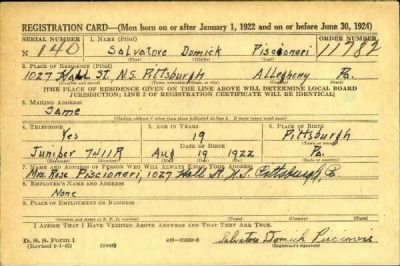 REGISTRATION CARD—(Men born on or after January 1, 1922 and on or before June 30, 1924)
SERIAL NUMBER 1. NAME (Print) ORDER NUMBER
N 140 Salvatore Domick Piscioneri 11782
(First) (Middle) (Last)
2. PLACE OF RESIDENCE (Print)
1027 Hall St. N.S. Pittsburgh Allegheny Pa.
[THE PLACE OF RESIDENCE GIVEN ON THE LINE ABOVE WILL DETERMINE LOCAL BOARD
JURISDICTION; LINE 2 OF REGISTRATION CERTIFICATE WILL BE IDENTICAL]
3. MAILING ADDRESS
Same
4. TELEPHONE 5. AGE IN YEARS 6. PLACE OF BIRTH
Yes 19 Pittsburgh
DATE OF BIRTH
Juniper 7411R Aug 19 1922 Pa.
7. NAME AND ADDRESS OF PERSON WHO WILL ALWAYS KNOW YOUR ADDRESS
Mrs. Rose Piscioneri, 1027 Hall St. N.S. Pittsburgh, Pa.
8. EMPLOYER'S NAME AND ADDRESS
None
9. PLACE OF EMPLOYMENT OR BUSINESS
I AFFIRM THAT I HAVE VERIFIED ABOVE ANSWERS AND THAT THEY ARE TRUE.
D. S. S. Form 1 (over) Salvatore Domick Piscioneri